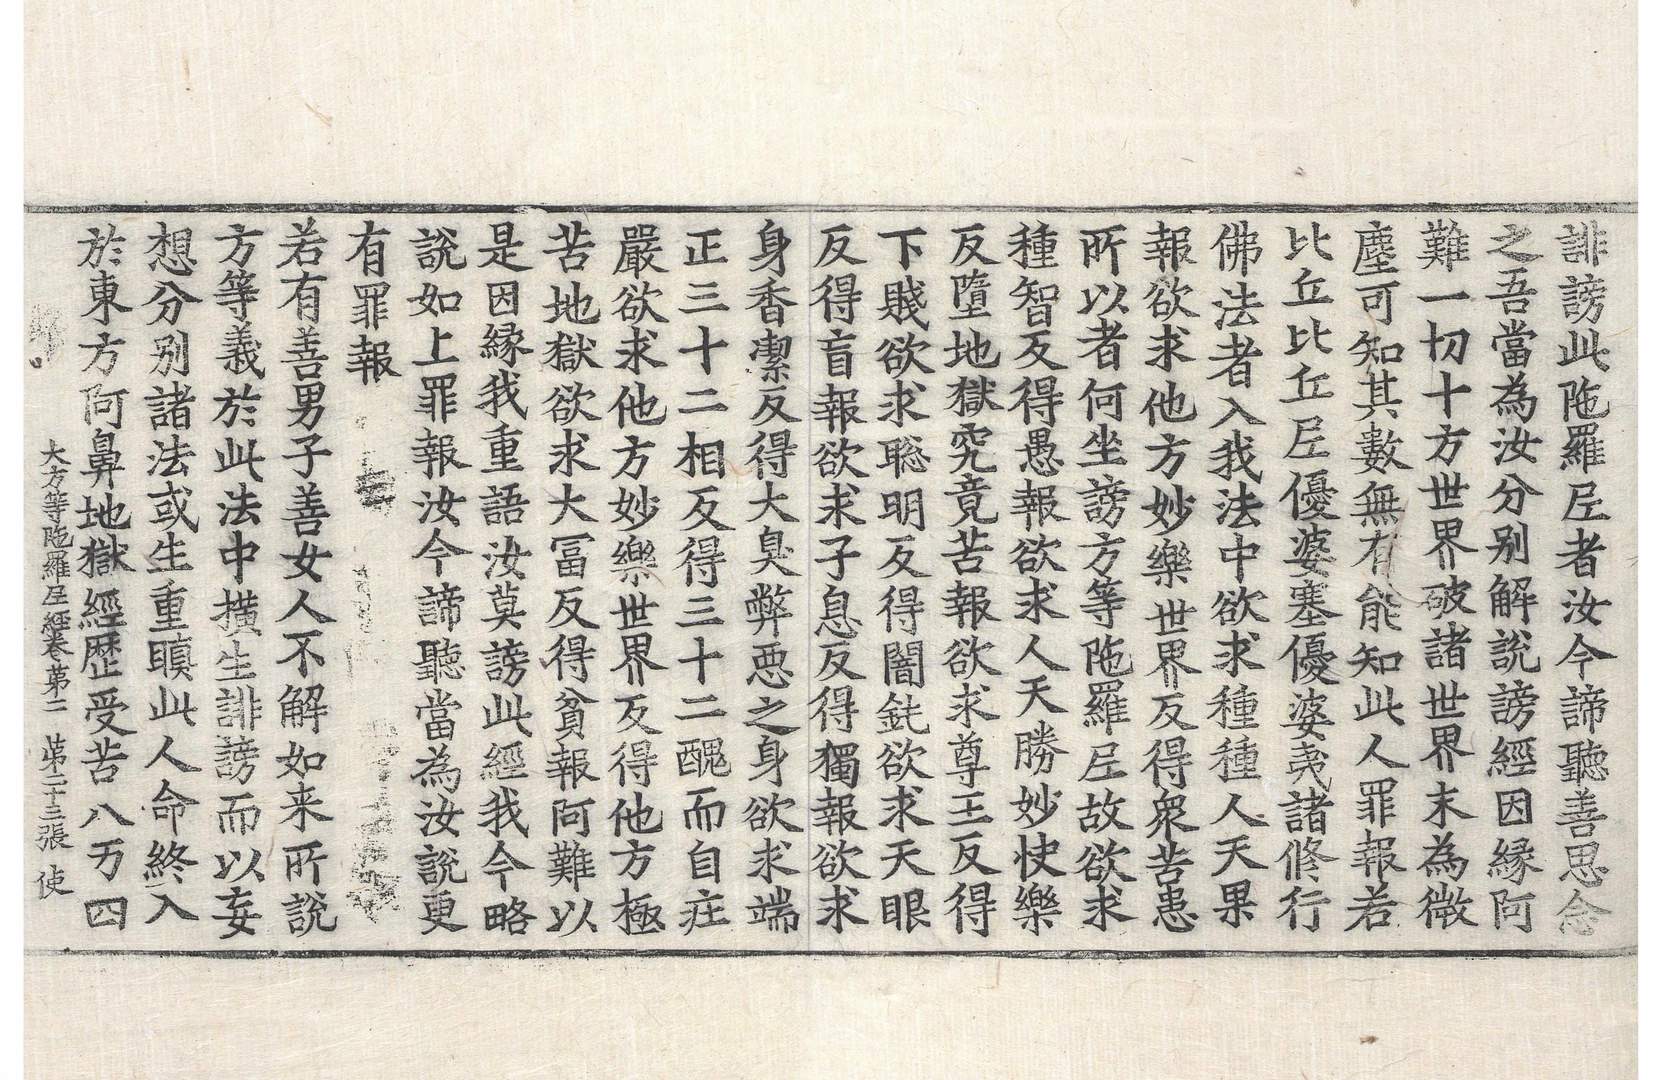 誹謗此陁羅尼者汝今諦聽善思念
之吾當為汝分别解說謗經因緣阿
難一切十方世界破諸世界末為微
塵可知其數無有能知此人罪報若
比丘比丘尼優婆塞優婆夷諸修行
佛法者入我法中欲求種種人天果
報欲求他方妙樂世界反得衆苦患
所以者何坐謗方等陁羅尼故欲求
種智反得愚報欲求人天勝妙快樂
反墮地獄究竟苦報欲求尊王反得
下賤欲求聡明反得闇鈍欲求天眼
反得盲報欲求子息反得獨報欲求
身香潔反得大臭弊惡之身欲求端
正三十二相反得三十二醜而自庄
嚴欲求他方妙樂世界反得他方極
苦地獄欲求大冨反得貧報阿難以
是因緣我重語汝莫謗此經我今略
說如上罪報汝今諦聽當為汝說更
有罪報
若有善男子善女人不解如来所說
方等義於此法中撗生誹謗而以妄
想分别諸法或生重瞋此人命終入
於東方阿鼻地獄經歷受苦八万四
大方等陁羅尼經卷第二 第二十三張 使